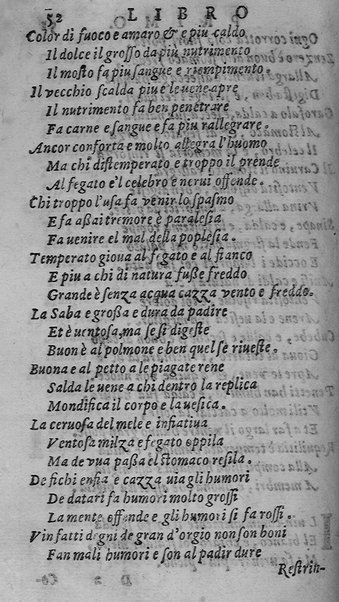 52 LIBRO
Color di fuoco e amaro & e piu caldo
Il dolce il grosso da più nutrimento
Il mosto fa piu sangue e riempimento
Il vecchio scalda piu e le uene apre
Il nutrimento fa ben penetrare
Fa carne e sangue e fa piu rallegrare
Ancor conforta e molto allegra l'huomo
Ma chi distemperato e troppo il prende
Al fegato e'l celebro e nerui offende.
Chi troppo l'usa fa venir lo spasmo
E fa assai tremore e paralesia
Fa uenire el mal della poplesia.
Temperato gioua al fegato e al fianco
E piu a chi di natura fusse freddo
Grande è senza acqua cazza vento e freddo.
La Saba e grossa e dura da padire
Et è uentosa, ma se si digeste
Buon è al polmone e ben quel se riueste.
Buona e al petto a le piagate rene
Salda le uene a chi dentro la replica
Mondifica il corpo e la uesica.
La ceruosa del mele e infiatiua
Ventosa milza e fegato oppila
Ma de vua passa el stomaco resila.
De fichi enfia e cazza uia gli humori
De datari fa humori molto grossi
La mente offende e gli humori si fa rossi.
Vin fatti degni de gran d'orgio non son boni
Fan mali humori e son al padir dure
Restrin-